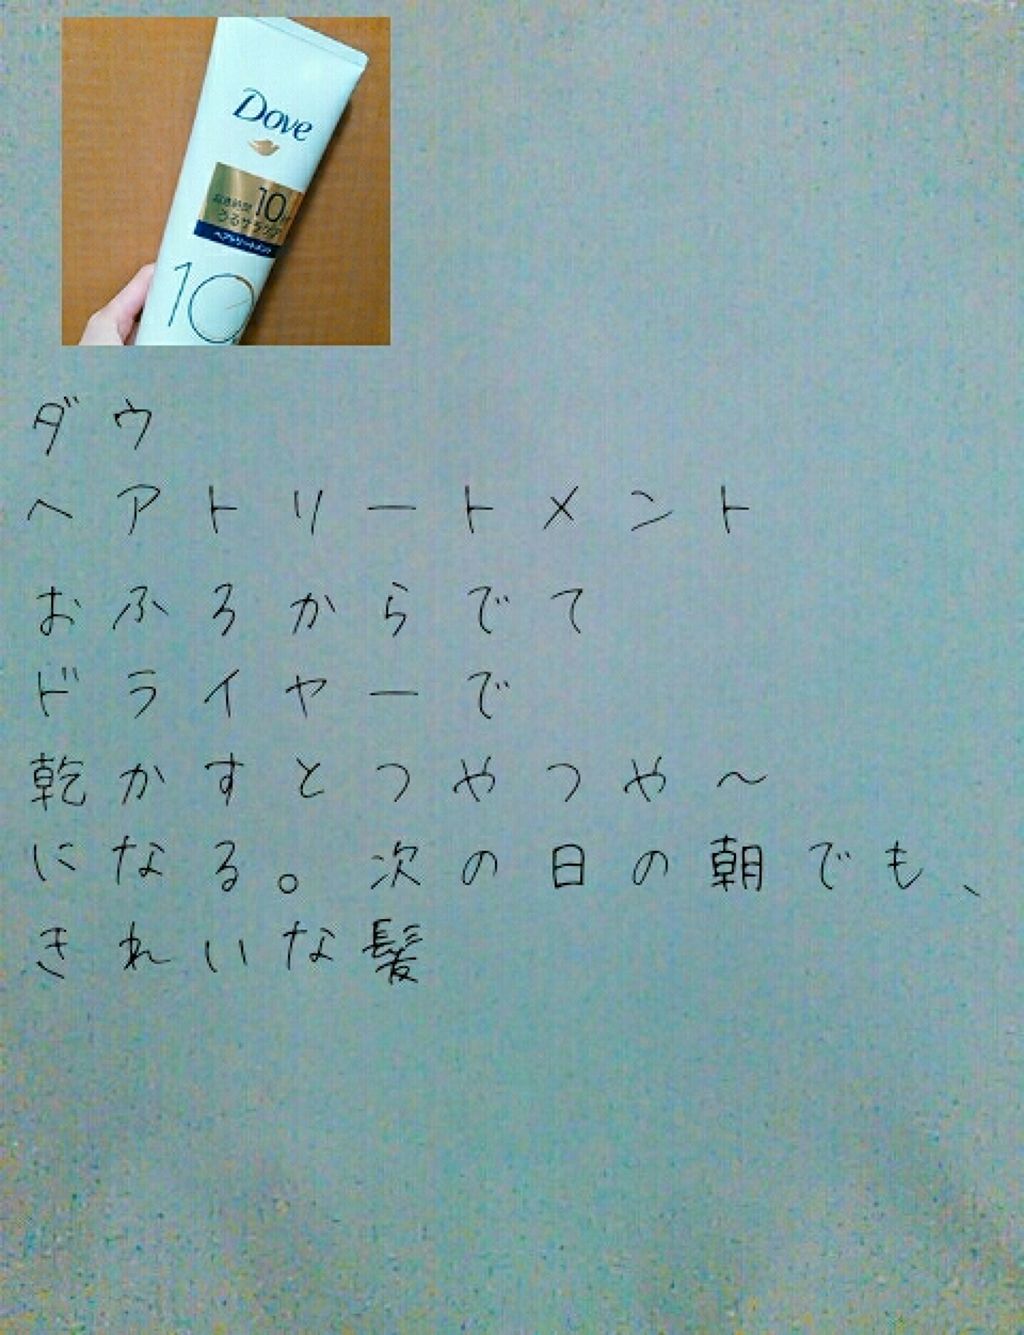 Dove
10
うるサラ
ヘアトリートメント
10
ダウ
ヘアトリートメント
おふろからでて
ドライヤーで
乾かすとつやつや〜
になる。次の日の朝でも、
きれいな髪